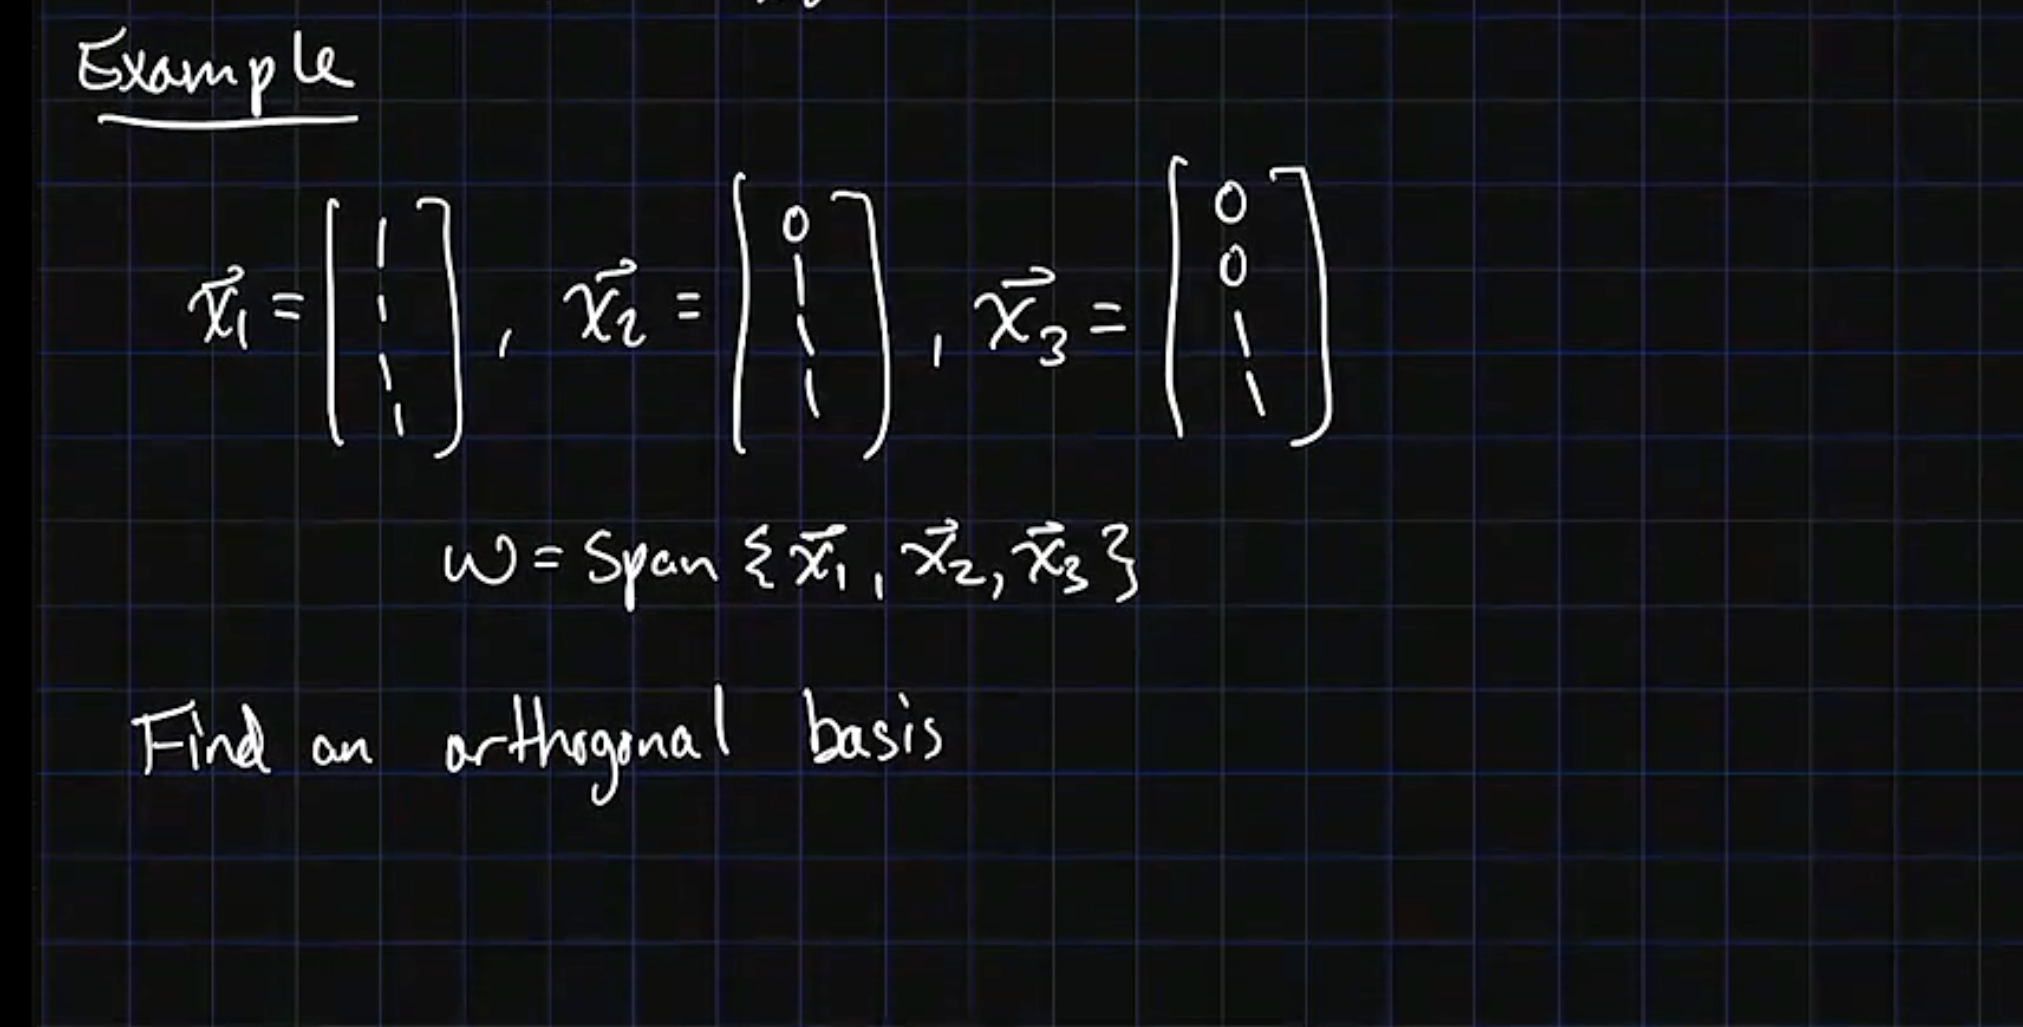 Example
x⃗₁ = [1 1 1 1], x⃗₂ = [0 1 1 1], x⃗₃ = [0 0 1 1]
W = Span {x⃗₁, x⃗₂, x⃗₃}
Find an orthogonal basis